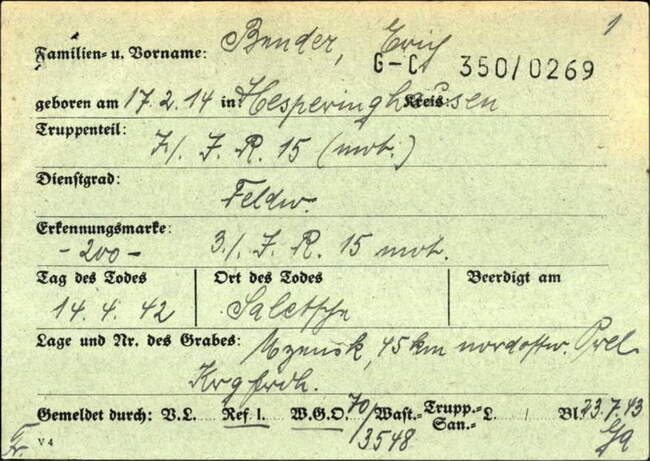 1
Familien- u. Vorname: Bender, Erich
G-C 350/0269
geboren am 17.2.14 in Hesperinghausen Kreis:
Truppenteil:
7./ J. R. 15 (mot.)
Dienstgrad:
Feldw.
Erkennungsmarke:
-200- 3./ J. R. 15 mot.
Tag des Todes Ort des Todes Beerdigt am
14.4.42 Saletsche
Lage und Nr. des Grabes: Mzensk, 45 km nordostw. Orel
Krgfrdh.
Gemeldet durch: V.L. Ref 1. W.G.O. 70/ Wast.- Trupp.- L. / Bl. 23.7.43
San.-
13548
V 4